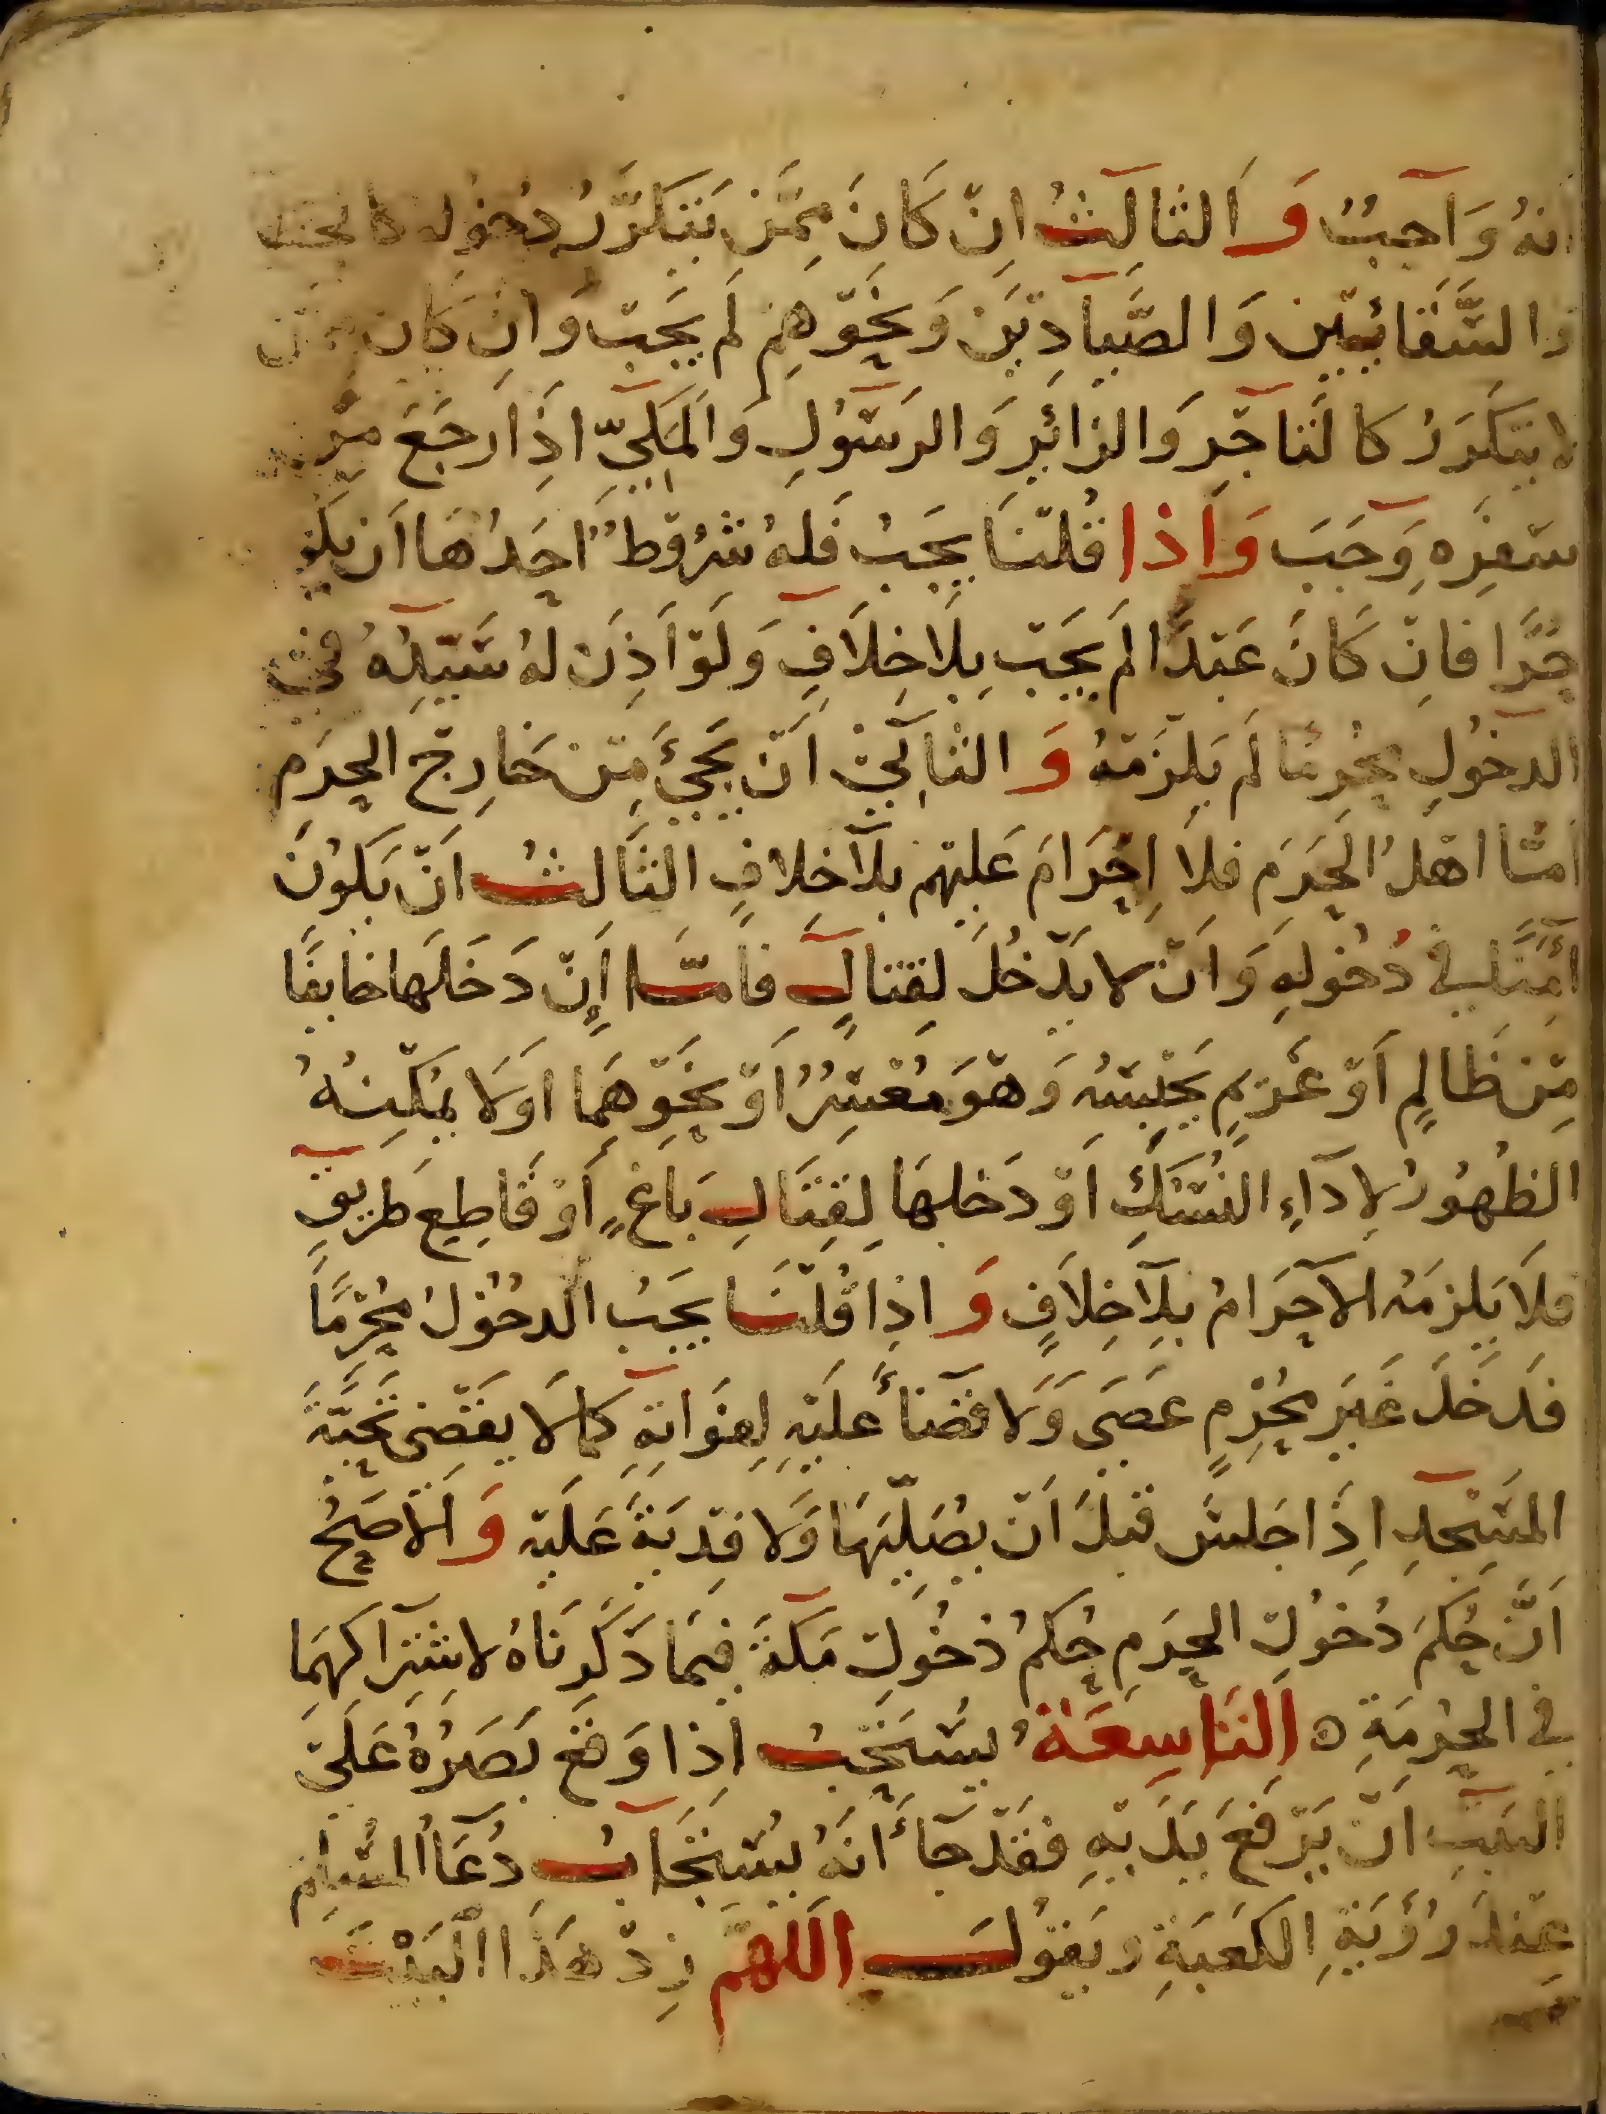 انهُ وَاجبُ وَالثالثُ اِنْ كَانَ مِمَّنْ يَتَكَرَّرُ دُخولُه
والسَّقائيِين وَالصَّيادِيْنَ وَنَحْوِهِمْ لَم يَجَبْ وَاِنْ كان مِمَّن
لا يتكَرَرُ كالتَاجِرِ وَالزائِرِ وَالرَسُولِ وَالمَكِيِّ اذَا رَجَعَ مِنْ
سَفِرَهِ وَجَبَ وَاذا قُلنَا يجَبُ فَلهُ شرُوْطٌ احَدُهَا اَن يَكُو
حُرًّا فانْ كَانَ عَبْدًا لَم يجَبْ بِلَا خِلَافٍ وَلَوْ اَذِنَ لهُ سَيّدِهُ في
الدخُولِ محُرِمًا لَم يَلزَمْهُ وَالثانِيْ اَنْ يَجَيْءَ مِنْ خَارِجْ الحرَم
اَمَّا اهْلُ الحَرَمِ فلَا اِحْرَامَ عَليْهم بلَا خِلافٍ الثَالثُ اَنْ يَكونَ
اۤمِنًا في دُخُولِهِ وَاَنْ لا يَدْخُلَ لقِتالٍ فاَمَّا اِنْ دَخَلَهَا خايفًا
مِنْ ظَالِمٍ اَوْ غَريمٍ يَحْبِسَهُ وَهْوَ مُعْسِرٌ اَوْ نَحْوِهَما اوَلَا يمكِنُهُ
الظهُورُ لاِدَاءِ النُسُكِ اَوْ دَخلهَا لِقِتَالِ بَاغٍ اَوْ قَاطِعِ طَريقٍ
فلَا يَلزمَهُ الاحْرَامُ بلَا خِلَافٍ وَاذِا قُلْنَا يجَبُ الدخُوْلُ مُحْرِمًا
فدَخَلَ غَيرَ مُحْرِمٍ عَصَى وَلَا قضَاءَ عَليْهِ لِفَوَاتِهِ كما لَا يقضىَ تَحِيَّةَ
المَسْجدِ اذِا جَلسَ قبْلَ اَنْ يصَلِّيَهَا وَلا فِديَةَ عَلَيْهِ وَالاصَحُ
اَنَّ حُكمَ دُخوْلِ الحرَمِ حُكمُ دُخُولِ مَكةَ فيمَا ذكَرنَاهُ لاشتِرَاكهِمَا
في الحرْمَةِ ه التَاسِعَةُ يستَحَبُ اذِا وَقعَ بَصَرُهُ عَلَى
البَيتِ اَنْ يَرْفَعَ يَدَيْهِ فقَدْ جَاءَ اَنهُ يُستَجَابُ دُعَاءُ المسْلِمِ
عِندَ رُؤيَةِ الكَعبَةِ ويَقوُلُ اللهُمَّ زِدْ هَذَا الْبَيْتَ